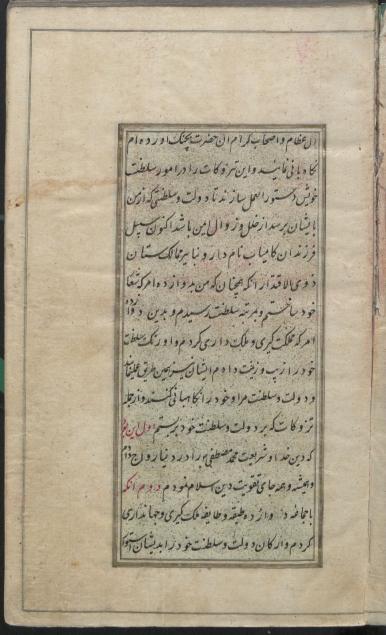 آل عظام و اصحاب کرام آن حضرت بچنگ آورده ام
نگاهبانی نمایند و این تزوکات را در امور سلطنت
خویش دستور العمل سازند تا دولت و سلطنتی که از من
بایشان برسد از خلل و زوال امن باشد اکنون سبیل
فرزندان کامیاب نامدار و نبایر ممالک ستان
ذوی الاقتدار آنکه همچنان که من بدوازده امر که شعار
خود ساختم و بمرتبه سلطنت رسیدم و بدین دوازده
امر که مملکت گیری و ملک داری کردم و اورنگ سلطنت
خود را زیب و زینت دادم ایشان نیز بهمین طریق عمل نمایند
و دولت و سلطنت مرا و خود را نگاهبانی کنند و از جمله
تزوکات که بر دولت و سلطنت خود بربستم اول این بود
که دین خدا و شریعت محمد مصطفی را در دنیا رواج دادم
و همیشه و همه جای تقویت دین اسلام نمودم دوم آنکه
با جماعه دوازده طبقه و طایفه ملک گیری و جهانداری
کردم و ارکان دولت و سلطنت خود را بدیشان استوار